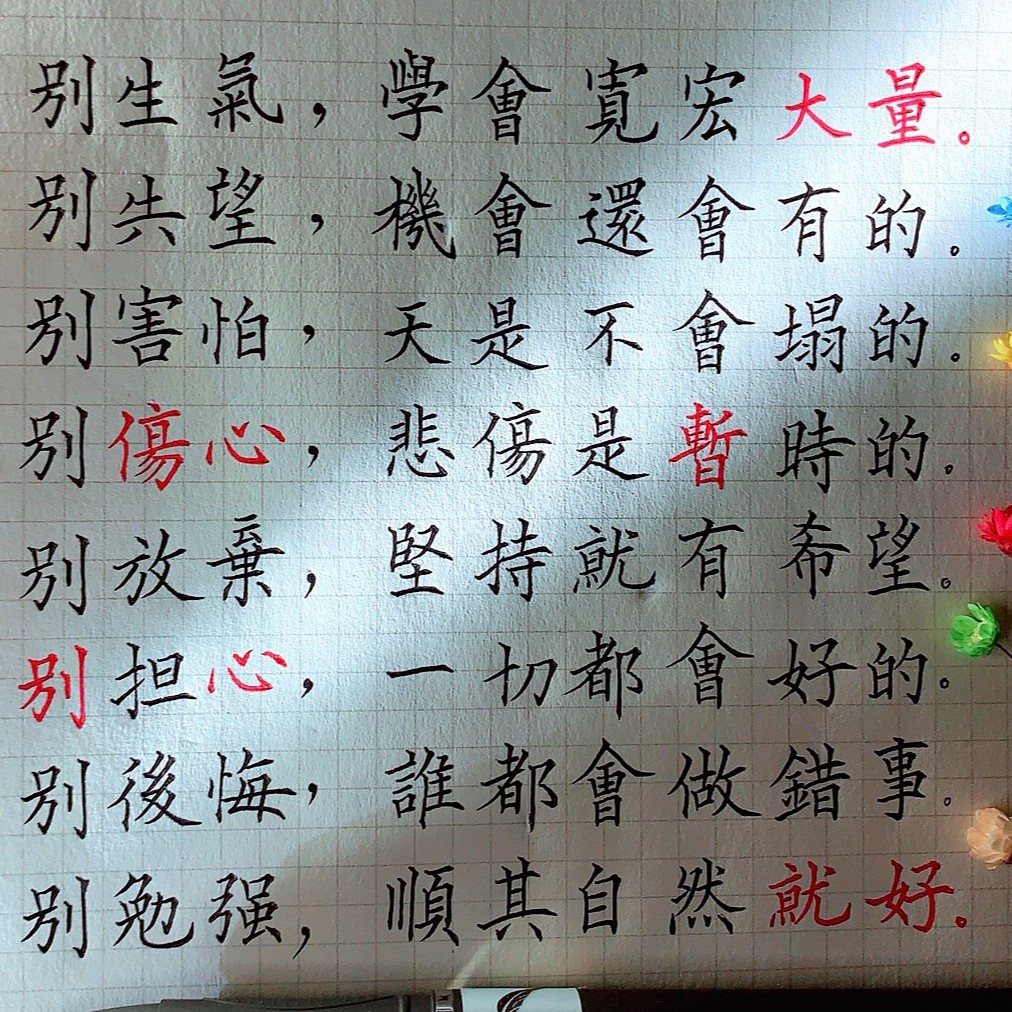 別生氣，學會寬宏大量。
別失望，機會還會有的。
別害怕，天是不會塌的。
別傷心，悲傷是暫時的。
別放棄，堅持就有希望。
別担心，一切都會好的。
別後悔，誰都會做錯事。
別勉强，順其自然就好。